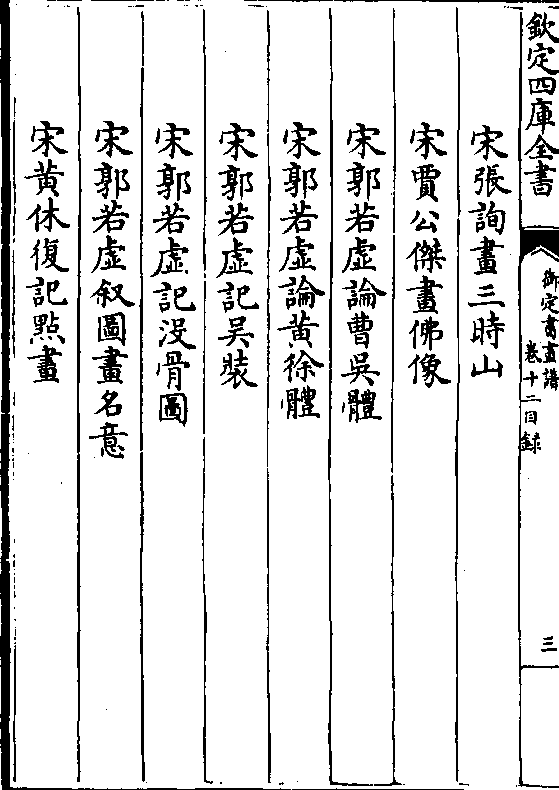 欽定四庫全書
御定書畫譜
卷十二目錄
三
宋張詢畫三時山
宋賈公傑畫佛像
宋郭若虚論曹吳體
宋郭若虚論黃徐體
宋郭若虚記吳裝
宋郭若虚記没骨圖
宋郭若虚叙圖畫名意
宋黃休復記點畫